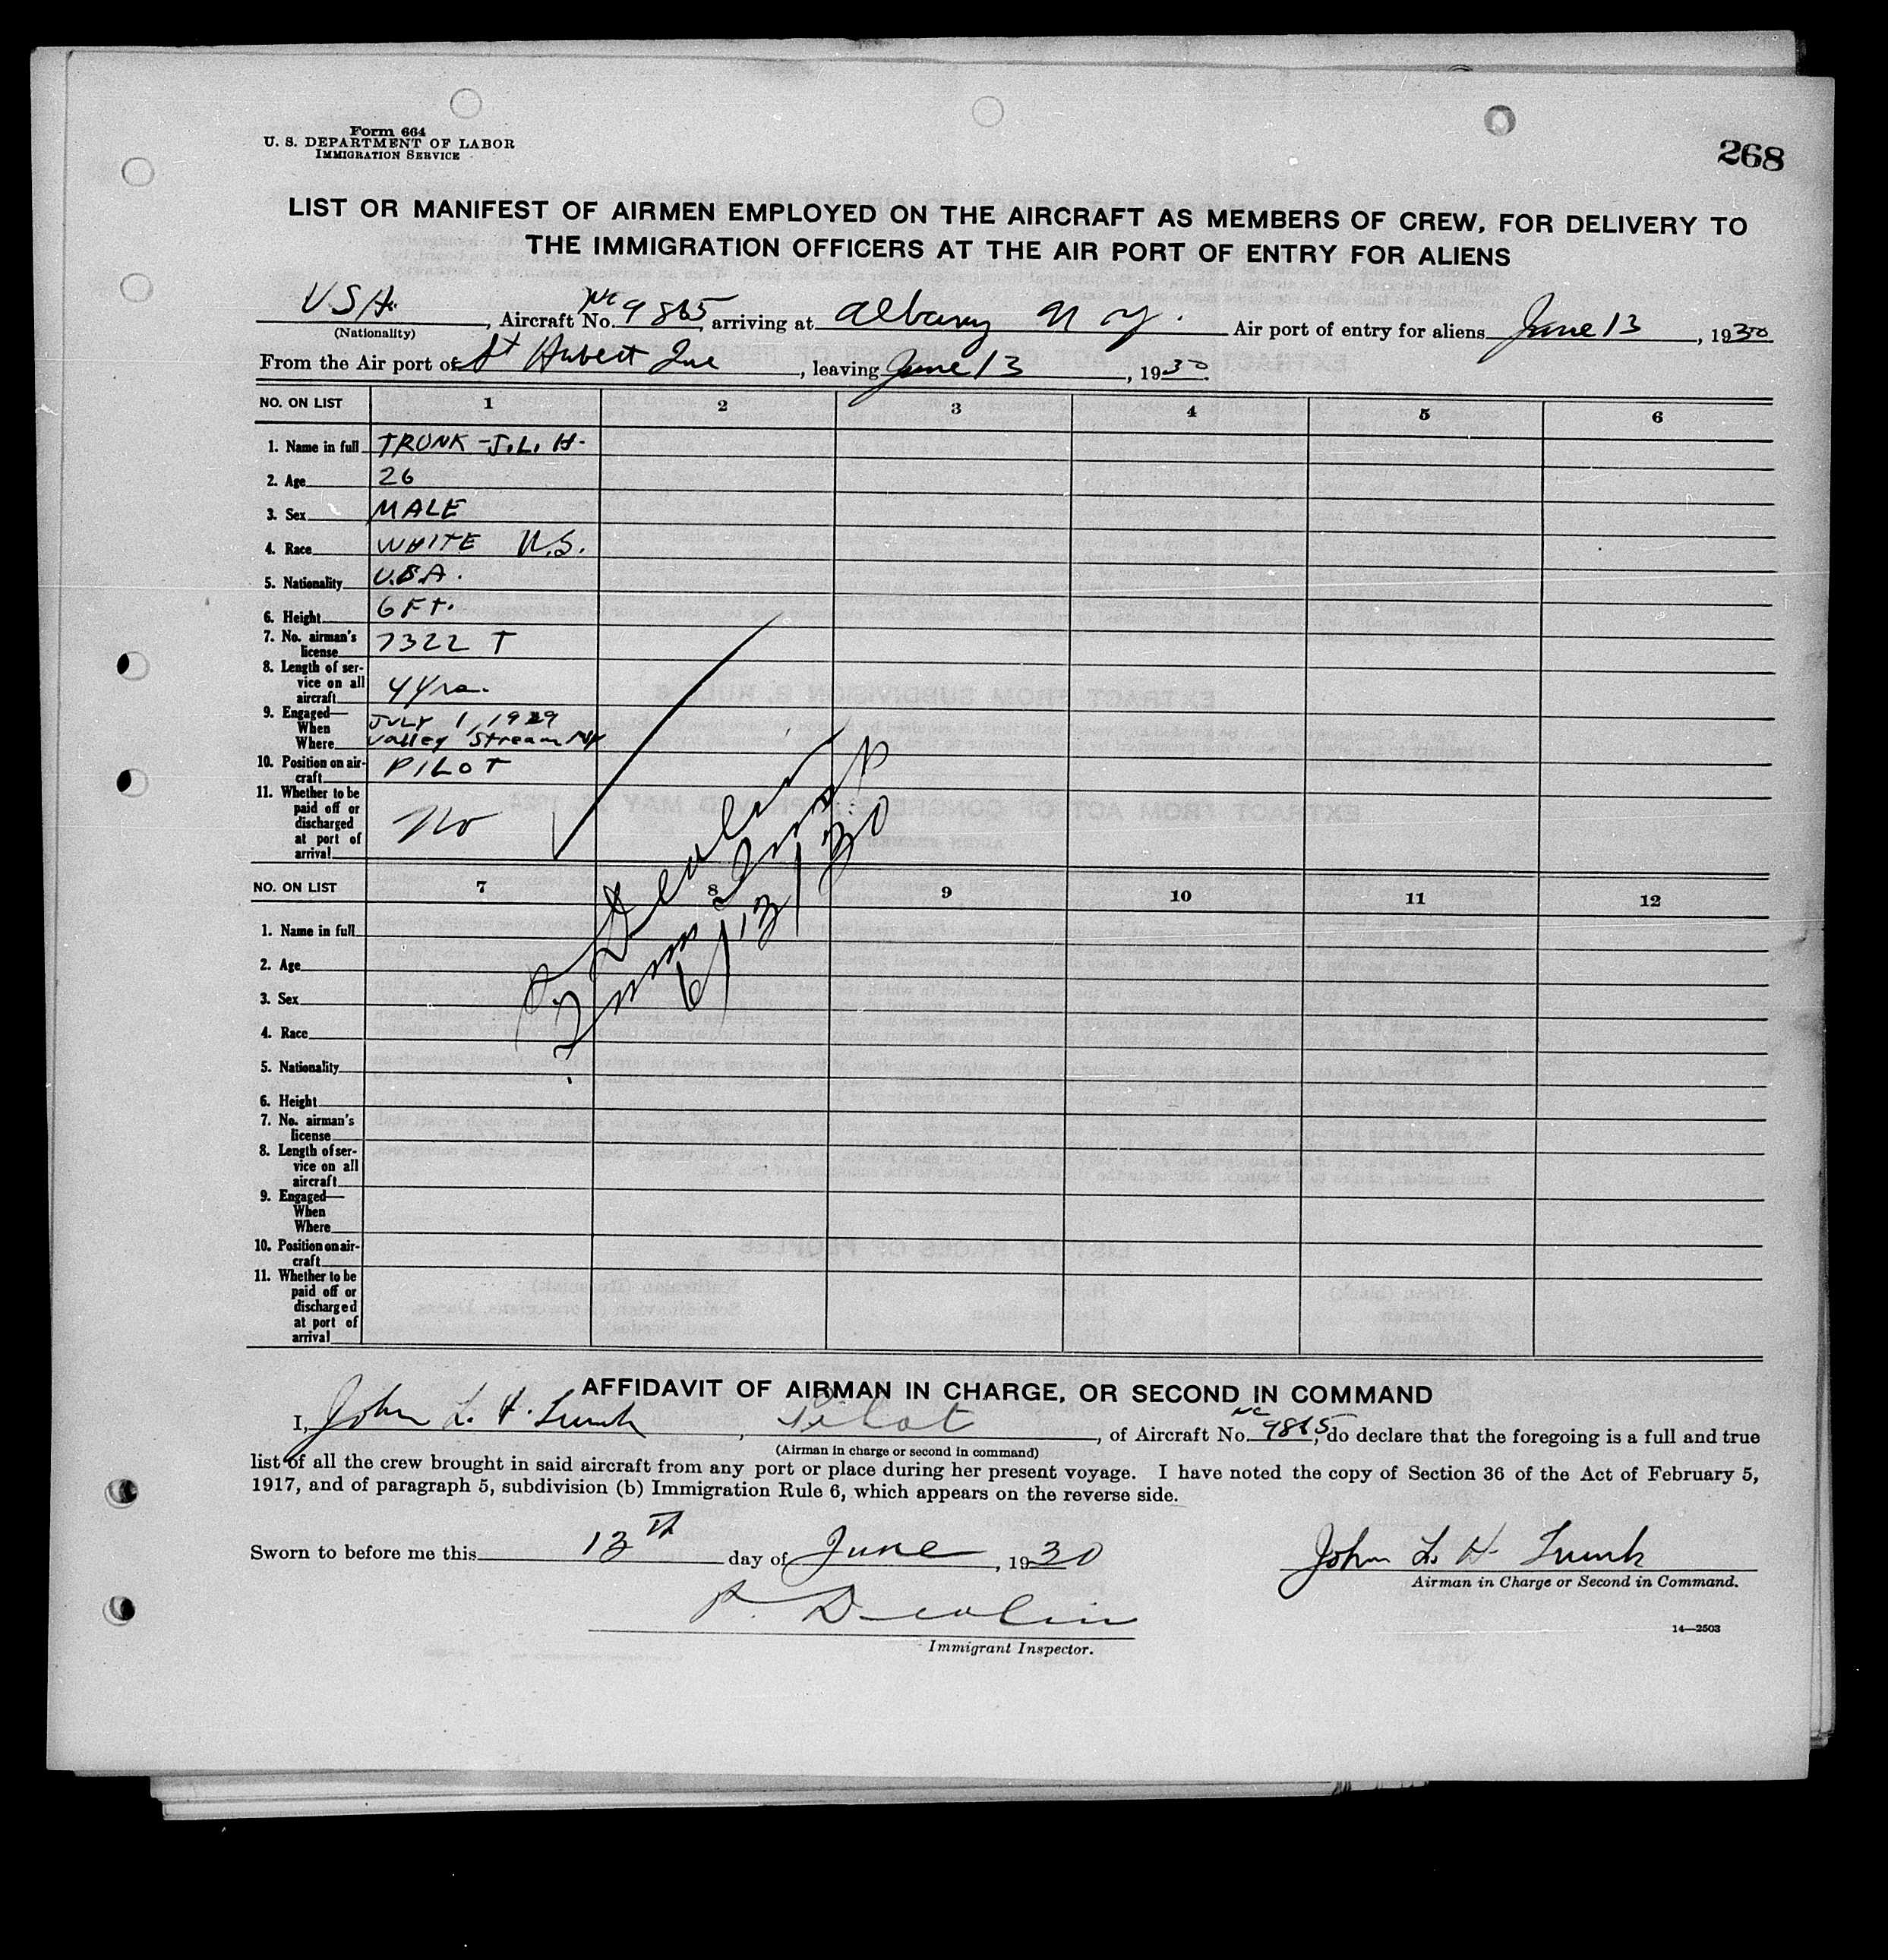 Form 664
U. S. DEPARTMENT OF LABOR
IMMIGRATION SERVICE
268
LIST OR MANIFEST OF AIRMEN EMPLOYED ON THE AIRCRAFT AS MEMBERS OF CREW, FOR DELIVERY TO
THE IMMIGRATION OFFICERS AT THE AIR PORT OF ENTRY FOR ALIENS
USA., Aircraft No. NC 9865, arriving at Albany N Y. Air port of entry for aliens June 13, 1930
(Nationality)
From the Air port of St Hubert Que, leaving June 13, 1930
NO. ON LIST 1 2 3 4 5 6
1. Name in full TRUNK - J. L. H.
2. Age 26
3. Sex MALE
4. Race WHITE U.S.
5. Nationality U.S.A.
6. Height 6 FT.
7. No. airman's
license 7322 T
8. Length of ser-
vice on all
aircraft 4 Yrs.
9. Engaged—
When JULY 1, 1929
Where Valley Stream NY
10. Position on air-
craft PILOT
11. Whether to be
paid off or
discharged
at port of
arrival No
P Devlin
Imm Insp
6/13/30
NO. ON LIST 7 8 9 10 11 12
1. Name in full
2. Age
3. Sex
4. Race
5. Nationality
6. Height
7. No. airman's
license
8. Length of ser-
vice on all
aircraft
9. Engaged—
When
Where
10. Position on air-
craft
11. Whether to be
paid off or
discharged
at port of
arrival
AFFIDAVIT OF AIRMAN IN CHARGE, OR SECOND IN COMMAND
I, John L. H. Trunk, Pilot, of Aircraft No. NC 9865, do declare that the foregoing is a full and true
(Airman in charge or second in command)
list of all the crew brought in said aircraft from any port or place during her present voyage. I have noted the copy of Section 36 of the Act of February 5,
1917, and of paragraph 5, subdivision (b) Immigration Rule 6, which appears on the reverse side.
Sworn to before me this 13th day of June, 1930
John L. H. Trunk
Airman in Charge or Second in Command.
P. Devlin
Immigrant Inspector.
14—2503